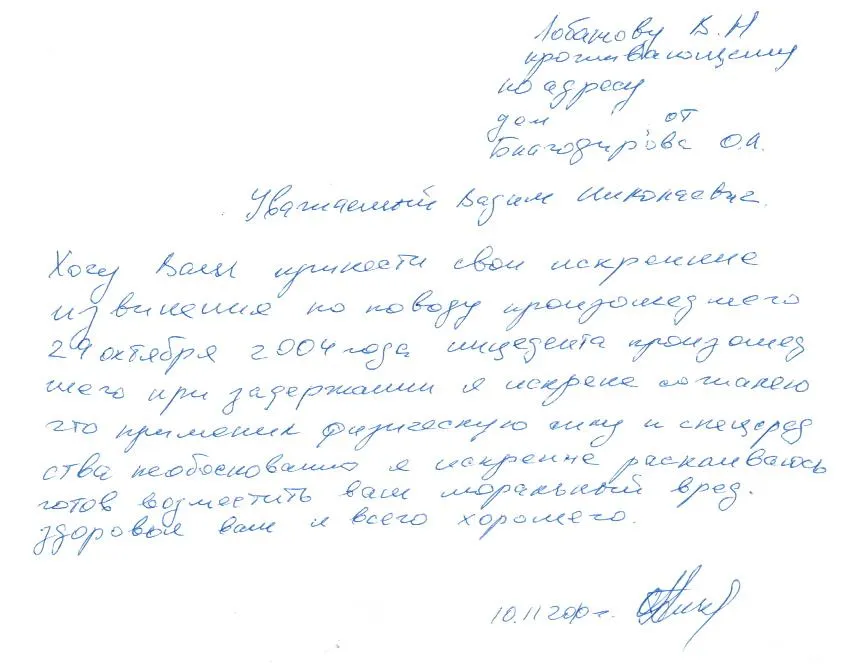 Лобанову В. Н
проживающему
по адресу
дом от
Благодирова О.А.
Уважаемый Вадим Николаевич.
Хочу Вам принести свои искренние
извинения по поводу произошедшего
24 октября 2004 года инцедента произошед
шего при задержании я искрене сожалею
что применил физическую силу и спецсред
ства необоснованно я искренне раскаиваюсь
готов возместить вам моральный вред.
здоровья вам и всего хорошего.
10.11 г.